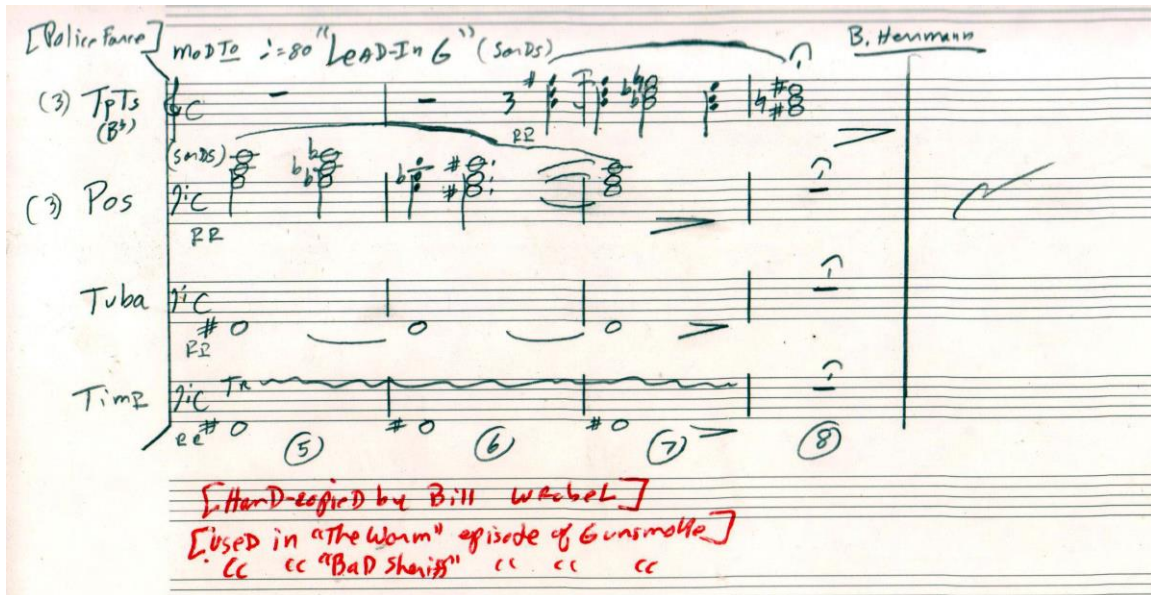 [Police Force] modto ♩=80 "Lead-In 6" (sords) B. Herrmann
(3) Tpts
(Bb) C 3
PP
(sords)
(3) Pos C
PP
Tuba C
PP
Timp C TR
PP
5 6 7 8
[Hand-copied by Bill Wrobel]
[Used in "The Worm" episode of Gunsmoke]
" " "Bad Sheriff" " " "